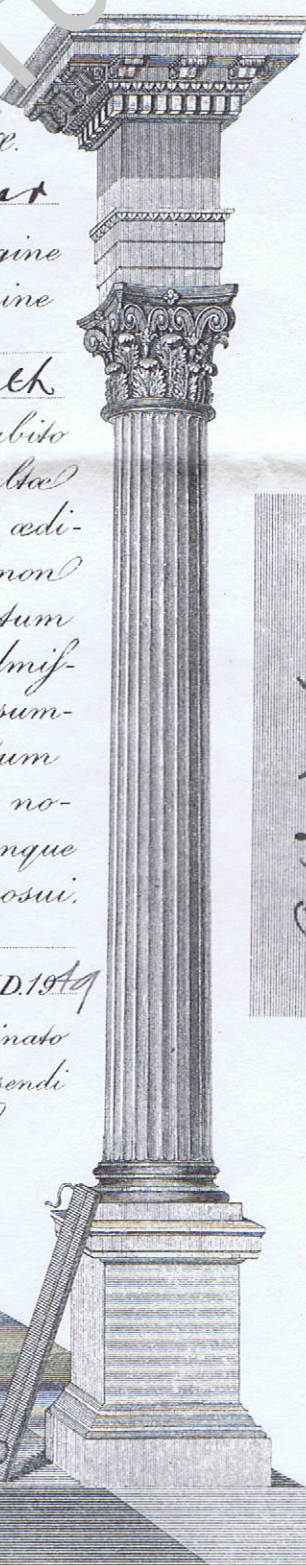 æ.
gine
ine
bito
ltæ
œdi-
non
tum
dmiſ-
sum-
tum
no-
nque
osui.
D.1949
inato
sendi